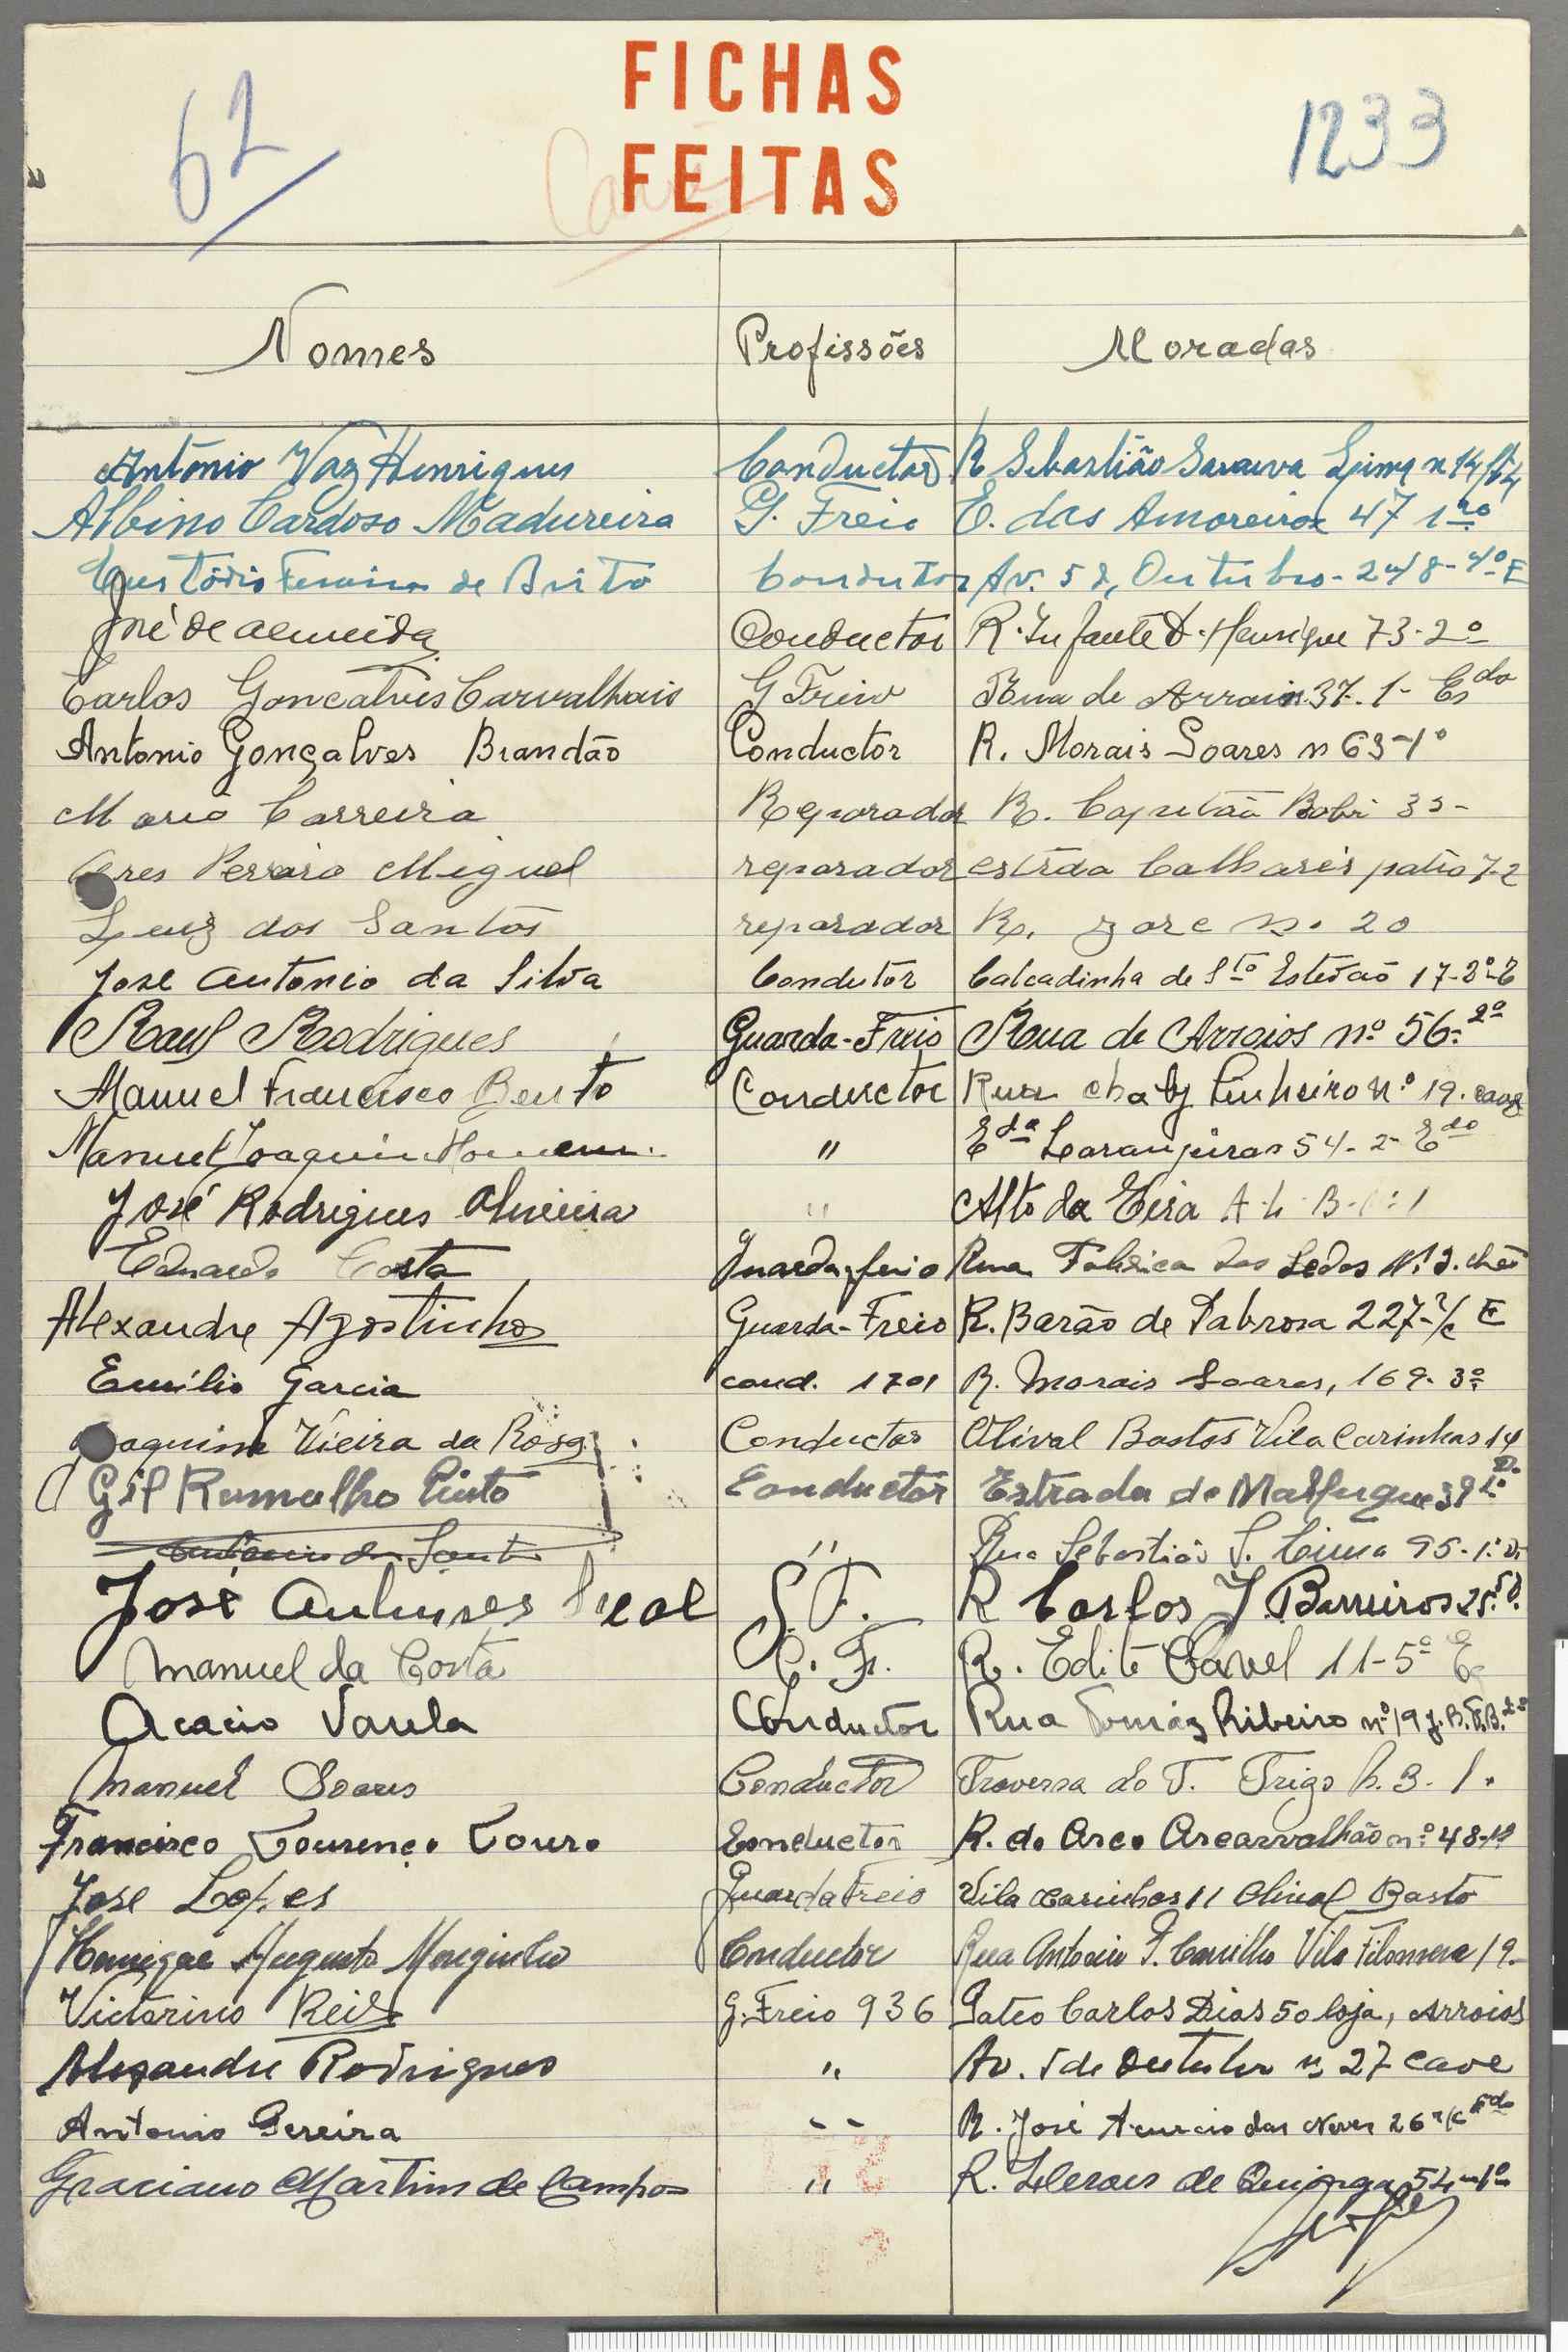 FICHAS
62
1233
FEITAS
Nomes Profissões Moradas
António Vaz Henriques Conductor R Sebastião Saraiva Lima n 14
Albino Cardoso Madureira G. Freio E. das Amoreiras 47 1º
Custódio Ferreira de Brito Condutor Av. 5 d, Outubro - 248 - 4º E
José de Almeida Conductor R. Infante D. Henrique 73-2º
Carlos Goncalves Carvalhais G Freio Rua de Arroios 37-1- Esdo
Antonio Gonçalves Brandão Conductor R. Morais Soares n 63-1º
Mario Carreira Reparador R. Capitão 35-
Miguel reparador estrda Calhareis patio 7-2
Luiz dos Santos reparador R. no 20
Jose Antonio da Silva Condutor Calcadinha de Sto Estevão 17-2º-E
Raul Rodrigues Guarda-Freio Rua de Arroios nº 56-2º
Manuel Francisco Bento Conductor Rua chaby Pinheiro nº 19. cave
Manuel Joaquim Homem " Eda Laranjeiras 54-2- Edo
José Rodrigues Oliveira " Alto da Eira
Eduardo Costa Guarda freio Rua Fabrica das Sedas
Alexandre Agostinho Guarda-Freio R. Barão de Sabrosa 227-r/c E
Emílio Garcia cond. 1701 R. Morais Soares, 169-3º
Joaquim Vieira da Rosa Conductor Olival Bastos Vila Carinhas 14
Gil Ramalho Pinto Conductor Estrada de
" Rua Sebastião S. Lima 95-1º D.
José Antunes Leal G.F. R Carlos J. Barreiros 25
Manuel da Costa G. F. R. Edite Cavel 11-5º E
Acacio Varela Conductor Rua Tomáz Ribeiro nº 19
Manuel Soares Conductor Travessa do T. Trigo n. 3-1.
Francisco Lourenço Louro Conductor R. do Arco Arcarvalhão nº 48-1º
Jose Lopes Guarda Freio Vila Carinhas 11 Olival Basto
Henrique Augusto Conductor Rua Antonio Vila Filomena 19-
Victorino Reis G. Freio 936 Pateo Carlos Dias 50 loja, Arroios
Alexandre Rodrigues " Av. 5 de Outubro n 27 cave
Antonio Pereira " R. José Acurcio das Neves 26 r/c Edo
Graciano Martins de Campos " R. Herois de Quionga 54-1º